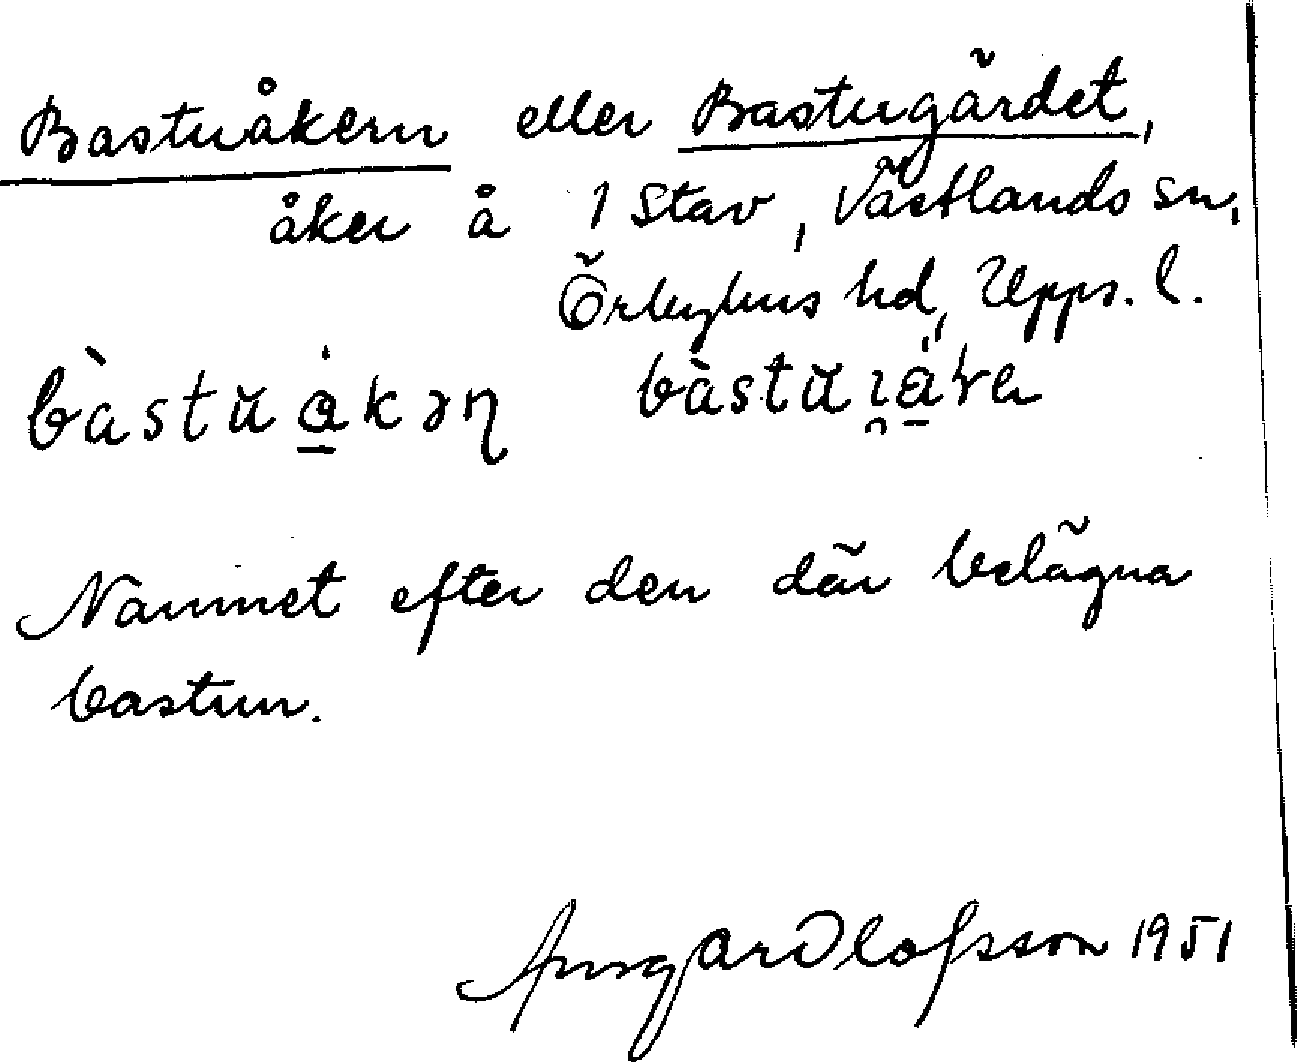 Bastuåkern eller Bastugärdet,
åker å 1 Stav, Västlands sn,
Örbyhus hd, Upps. l.
bàstŭȧ̱kəɳ bàstŭɪ̯ȧ̱ra
Namnet efter den där belägna
bastun.
Ansgar Olofsson 1951